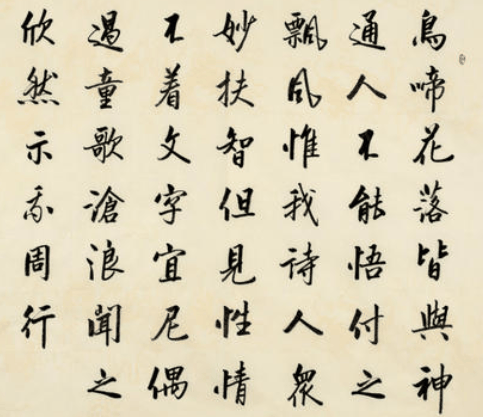 鳥啼花落皆與神
通人不能悟付之
飄風惟我詩人眾
妙扶智但見性情
不着文字宜尼偶
過童歌滄浪聞之
欣然示我周行